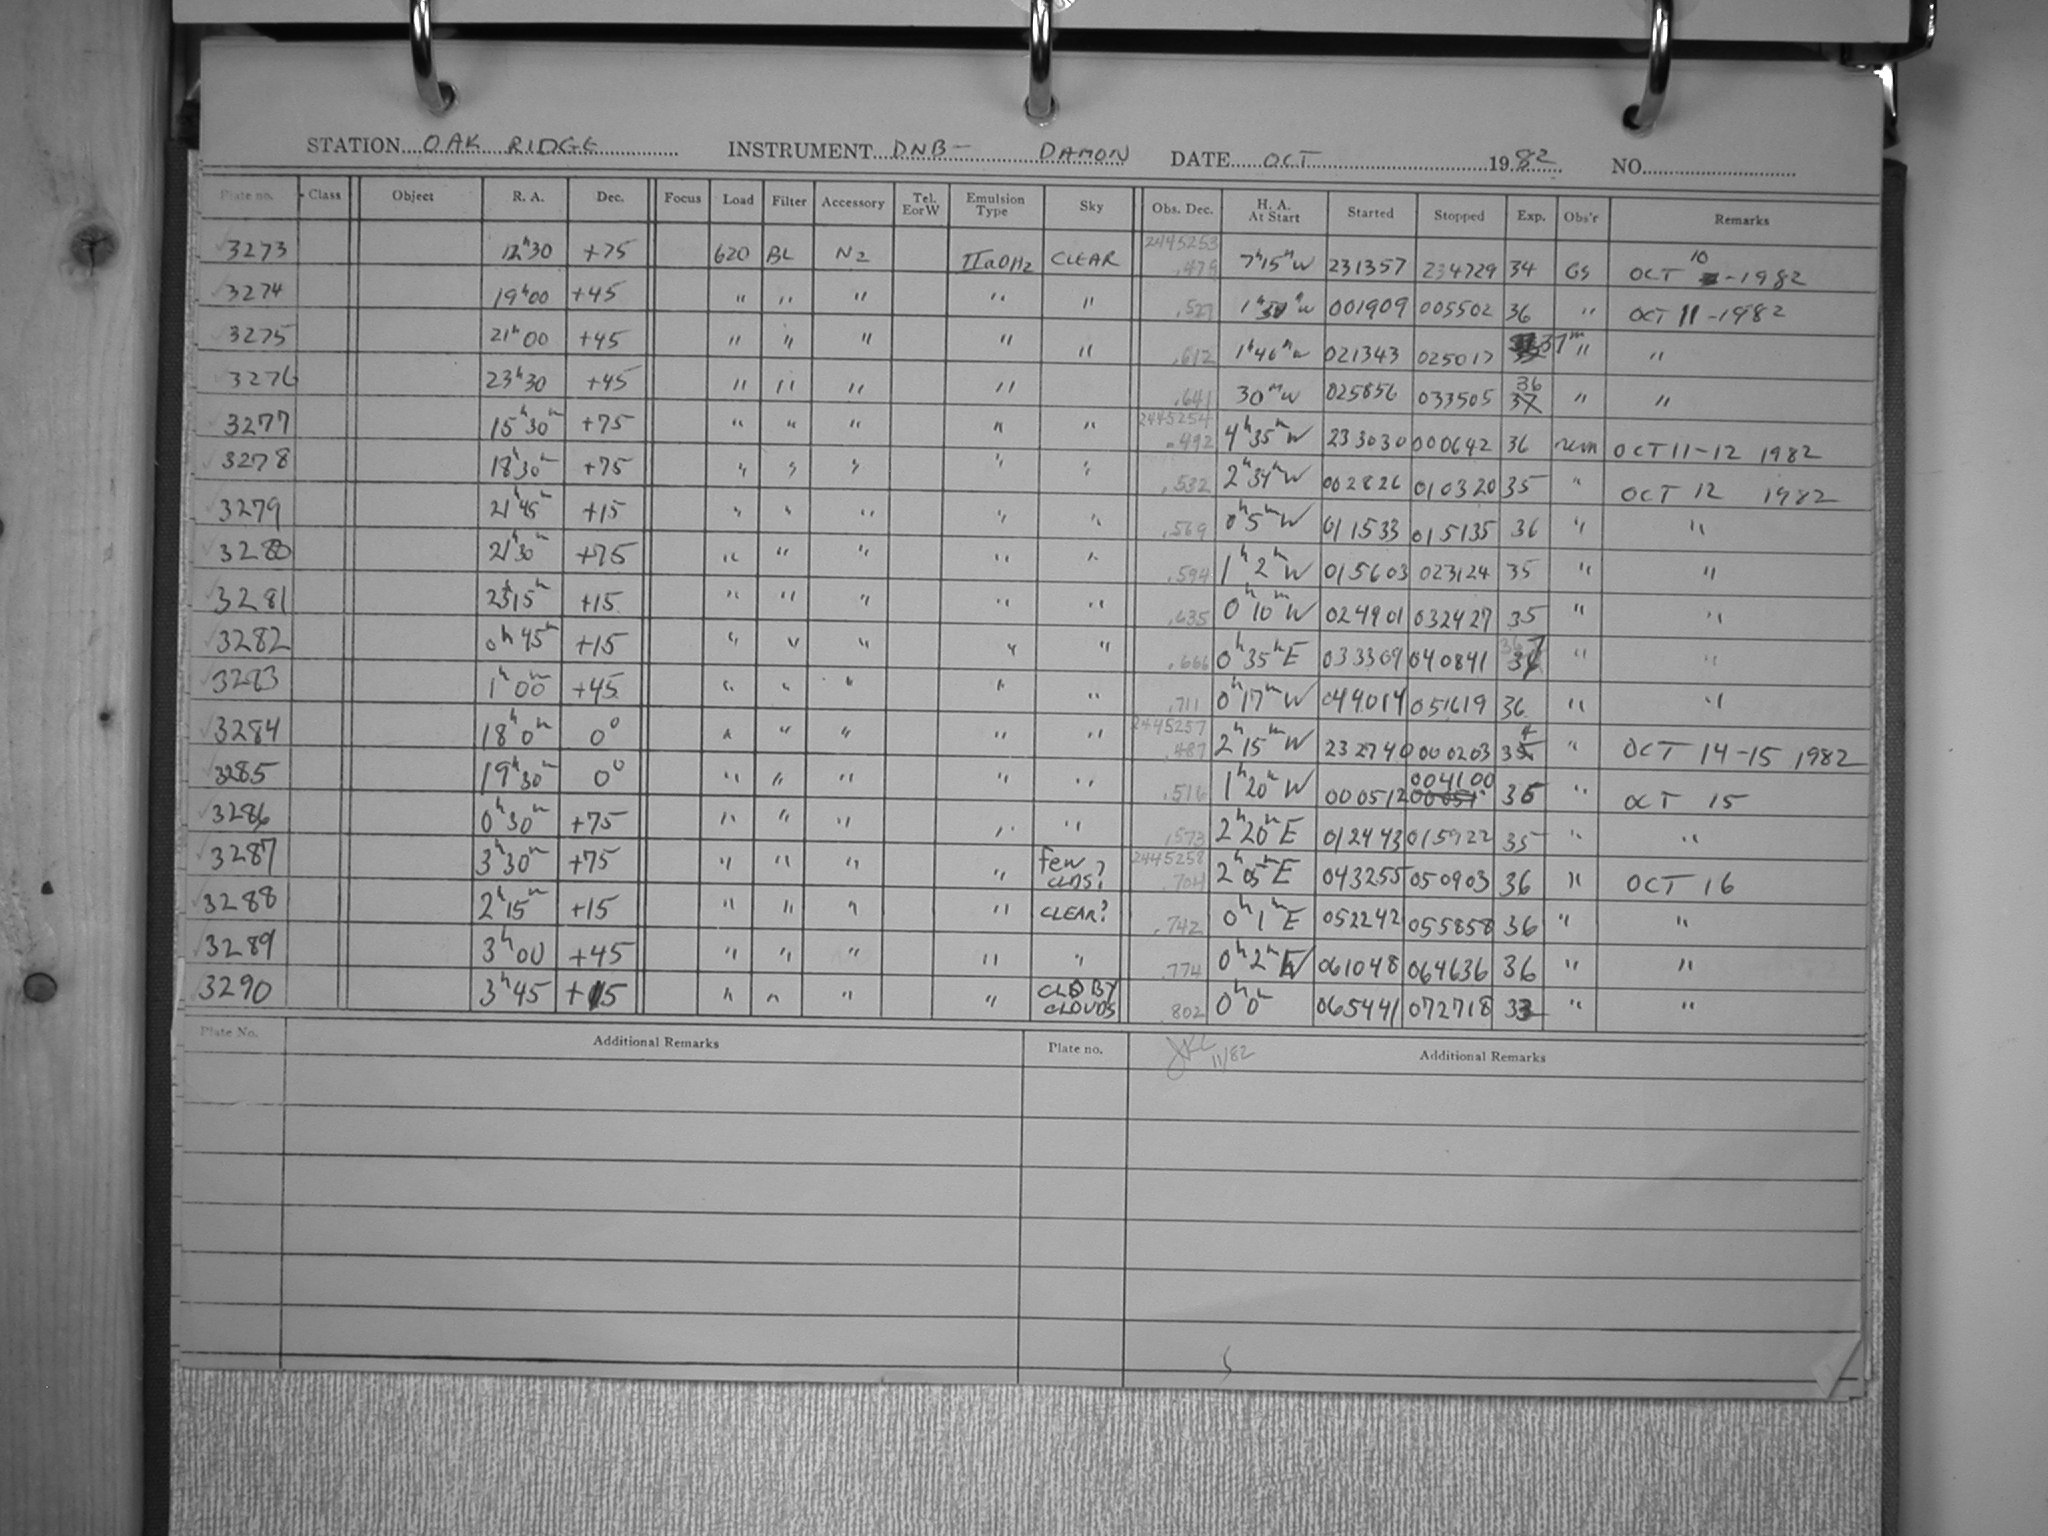 STATION OAK RIDGE INSTRUMENT DNB- DAMON DATE OCT 1982 NO.
Plate no. Class Object R. A. Dec. Focus Load Filter Accessory Tel. EorW Emulsion Type Sky Obs. Dec. H. A. At Start Started Stopped Exp. Obs'r Remarks
3273 12h30 +75 620 BL N2 IIaOH2 CLEAR 2445253 .479 7h15mW 231357 234729 34 GS OCT 10 -1982
3274 19h00 +45 " " " " " .527 001909 005502 36 " OCT 11-1982
3275 21h00 +45 " " " " " .612 1h46mW 021343 025017 37m " "
3276 23h30 +45 " " " " .641 30mW 025856 033505 36 37 " "
3277 15h30m +75 " " " " " 2445254 .492 4h35mW 233030 000642 36 OCT 11-12 1982
3278 18h30m +75 " " " " " .532 2h34mW 002826 010320 35 " OCT 12 1982
3279 21h45m +15 " " " " " .569 0h5mW 011533 015135 36 " "
3280 21h30m +75 " " " " " .594 1h2mW 015603 023124 35 " "
3281 23h15m +15 " " " " " .635 0h10mW 024901 032427 35 " "
3282 0h45m +15 " " " " " .666 0h35mE 033309 040841 " "
3283 1h00m +45 " " " " " .711 0h17mW 044014 051619 36 " "
3284 18h0m 0° " " " " " 2445257 .487 2h15mW 232740 000203 34 " OCT 14-15 1982
3285 19h30m 0° " " " " " .516 1h20mW 000512 004100 36 " OCT 15
3286 0h30m +75 " " " " " .573 2h20mE 012443 015922 35 " "
3287 3h30m +75 " " " " few clds? 2445258 .704 2h05mE 043255 050903 36 " OCT 16
3288 2h15m +15 " " " " CLEAR? .742 0h1mE 052242 055858 36 " "
3289 3h00 +45 " " " " " .774 0h2mW 061048 064636 36 " "
3290 3h45 +15 " " " " CLD BY CLOUDS .802 0h0m 065441 072718 33 " "
Plate No. Additional Remarks Plate no. JKL 11/82 Additional Remarks